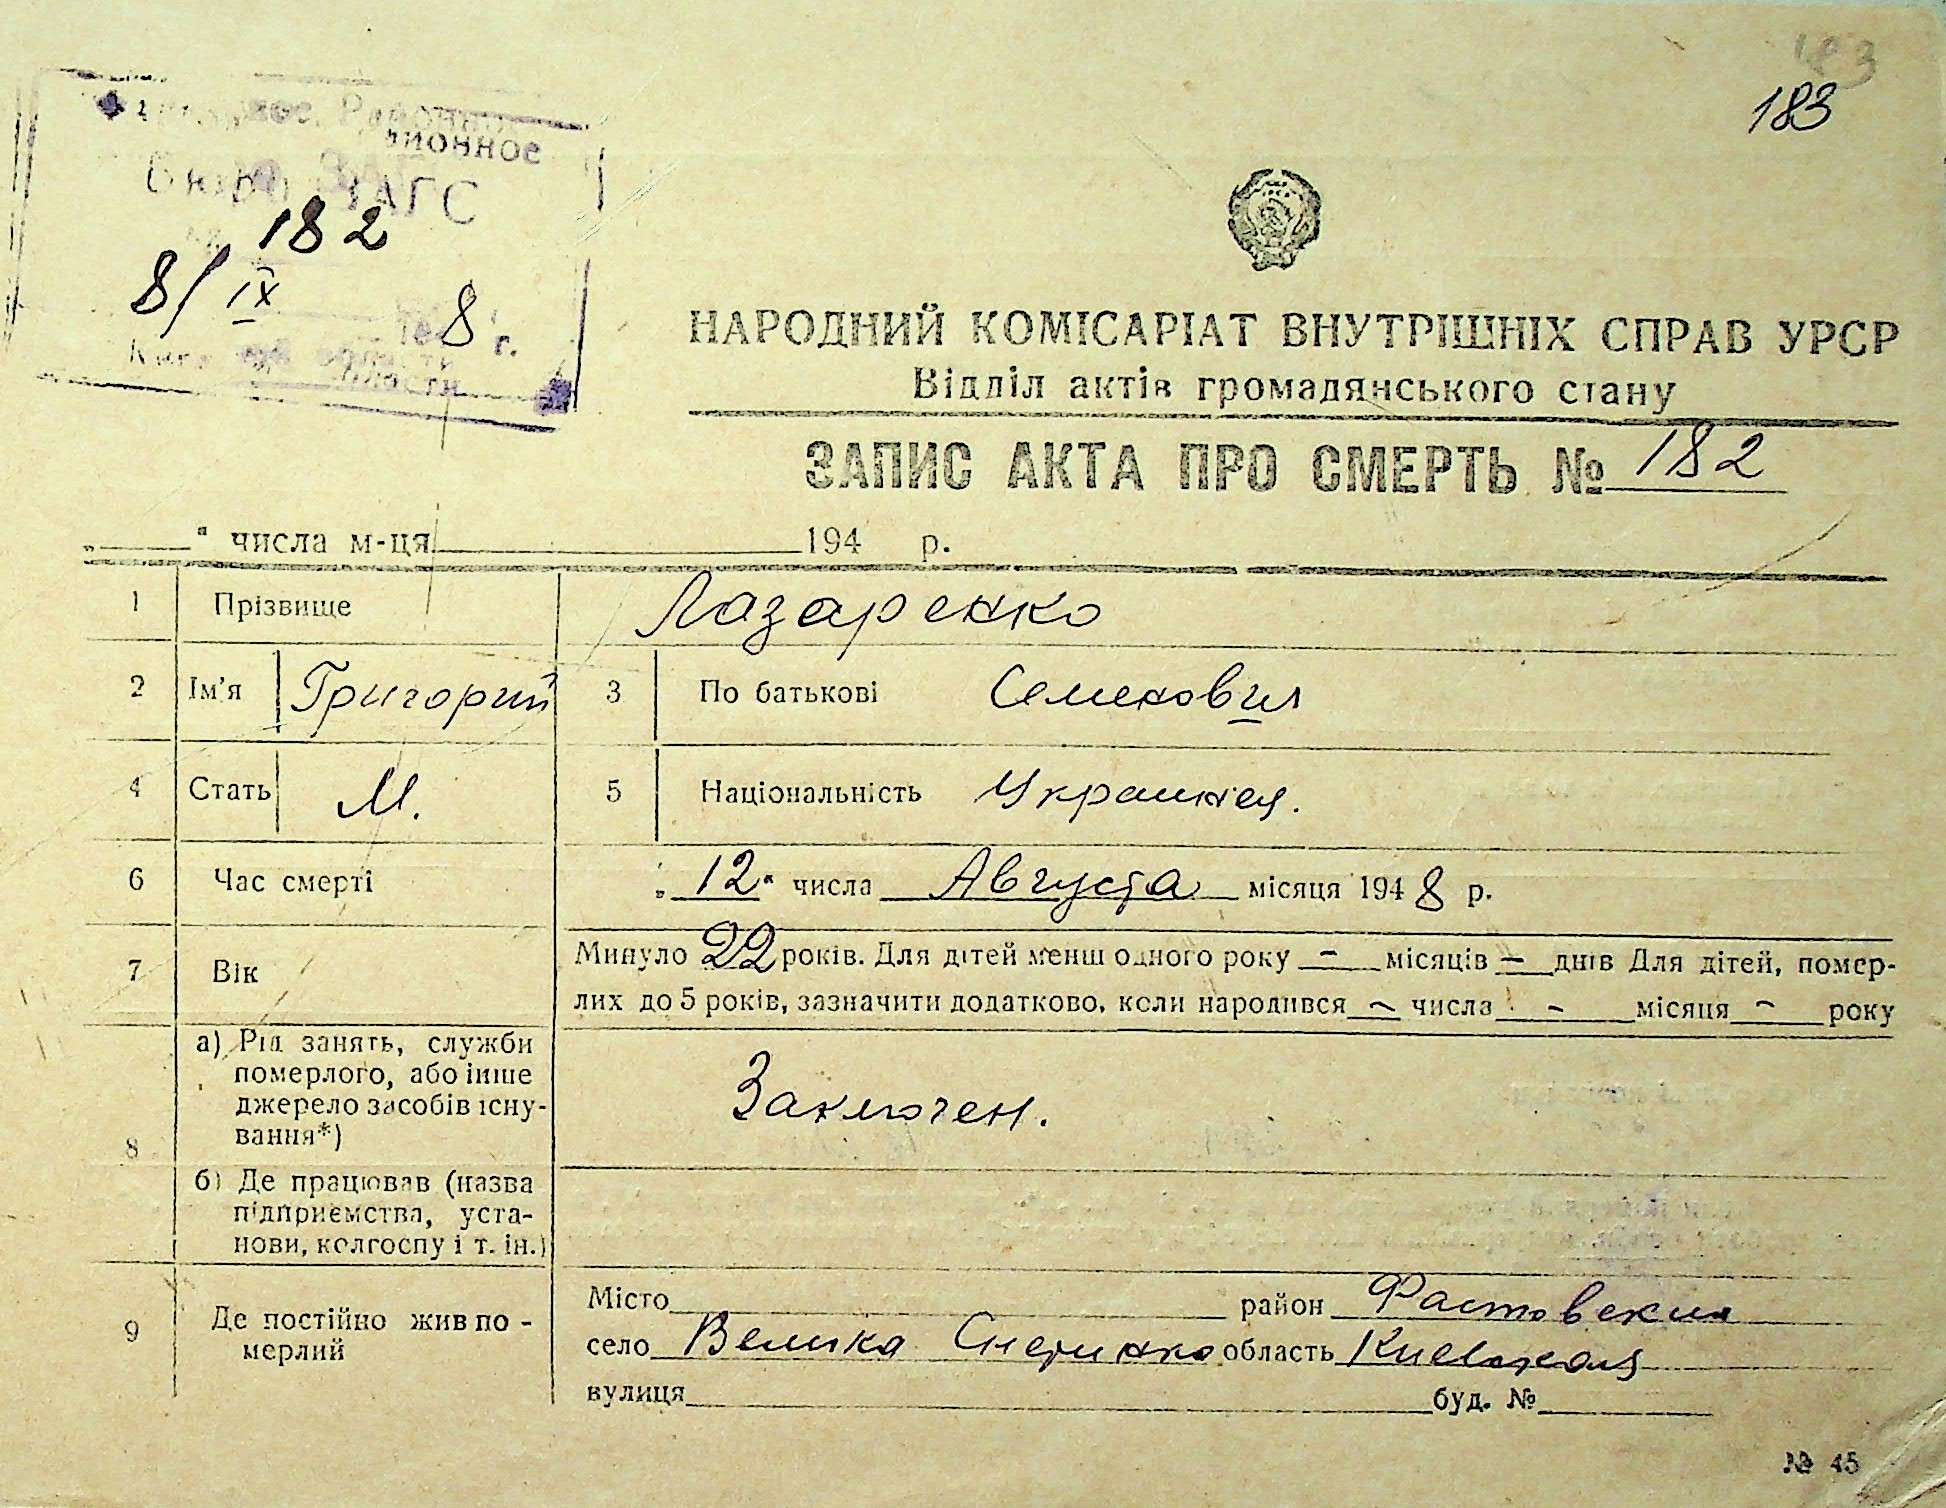 183
183
Бюро ЗАГС
182
8/IX 1948 г.
области
НАРОДНИЙ КОМІСАРІАТ ВНУТРІШНІХ СПРАВ УРСР
Відділ актів громадянського стану
ЗАПИС АКТА ПРО СМЕРТЬ № 182
„ " числа м-ця 194 р.
1 Прізвище Лазаренко
2 Ім'я Григорий 3 По батькові Семенович
4 Стать М. 5 Національність Украинец.
6 Час смерті „12" числа Августа місяця 1948 р.
7 Вік Минуло 22 років. Для дітей менш одного року – місяців – днів Для дітей, помер-
лих до 5 років, зазначити додатково, коли народився ~ числа - місяця ~ року
8 а) Рід занять, служби
померлого, або інше
джерело засобів існу-
вання*)
Заключен.
б) Де працював (назва
підприємства, уста-
нови, колгоспу і т. ін.)
9 Де постійно жив по-
мерлий
Місто район Фастовский
село Велика Снетинка область Киевская
вулиця буд. №
№ 45